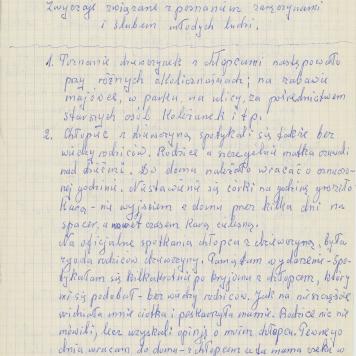 Zwyczaje związane z poznaniem, zaręczynami
i ślubem młodych ludzi.
1. Poznanie dziewczynek z chłopcami następowało
przy różnych okolicznościach; na zabawie
majówce, w parku, na ulicy, za pośrednictwem
starszych osób, koleżanek i t.p.
2. Chłopiec z dziewczyną spotykali się także bez
wiedzy rodziców. Rodzice a szczególnie matka czuwali
nad dziećmi. Do domu należało wracać o oznaczo-
nej godzinie. Niestawienie się córki na godzinę groziło
karą - nie wyjściem z domu przez kilka dni na
spacer, a nawet czasem karą cielesną.
Na oficjalne spotkania chłopca z dziewczyną, była
zgoda rodziców dziewczyny. Pamiętam wydarzenie - Spo-
tykałam się kilkakrotnie po kryjomu z chłopcem, który
mi się podobał - bez wiedzy rodziców. Jak na nieszczęście
widziała mnie ciotka i poskarżyła mamie. Rodzice nic nie
mówili, lecz uzyskali opinję o moim chłopcu. Pewnego
dnia wracam do domu z chłopcem a tu mama czeka w